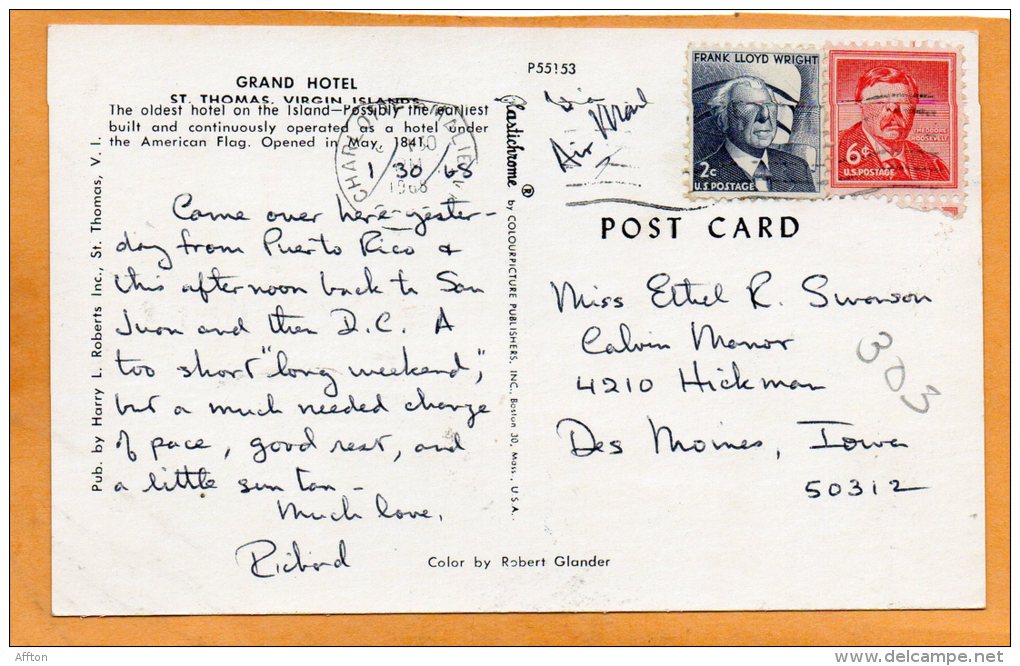 GRAND HOTEL
ST. THOMAS, VIRGIN ISLANDS
The oldest hotel on the Island—Possibly the earliest
built and continuously operated as a hotel under
the American Flag. Opened in May, 1841.
1 30 68
Came over here yester-
day from Puerto Rico &
this afternoon back to San
Juan and then D.C. A
too short "long weekend",
but a much needed change
of pace, good rest, and
a little sun tan -
Much love,
Richard
Pub. by Harry L. Roberts Inc., St. Thomas, V. I.
CHARLOTTE AMALIE
1968
Plastichrome ® by COLOURPICTURE PUBLISHERS, INC., Boston 30, Mass., U.S.A.
P55153
Via
Air Mail
FRANK LLOYD WRIGHT
2c
U.S. POSTAGE
THEODORE
ROOSEVELT
6¢
U.S. POSTAGE
POST CARD
Miss Ethel R. Swanson
Calvin Manor
4210 Hickman
Des Moines, Iowa
50312
303
Color by Robert Glander
Afton
www.delcampe.net